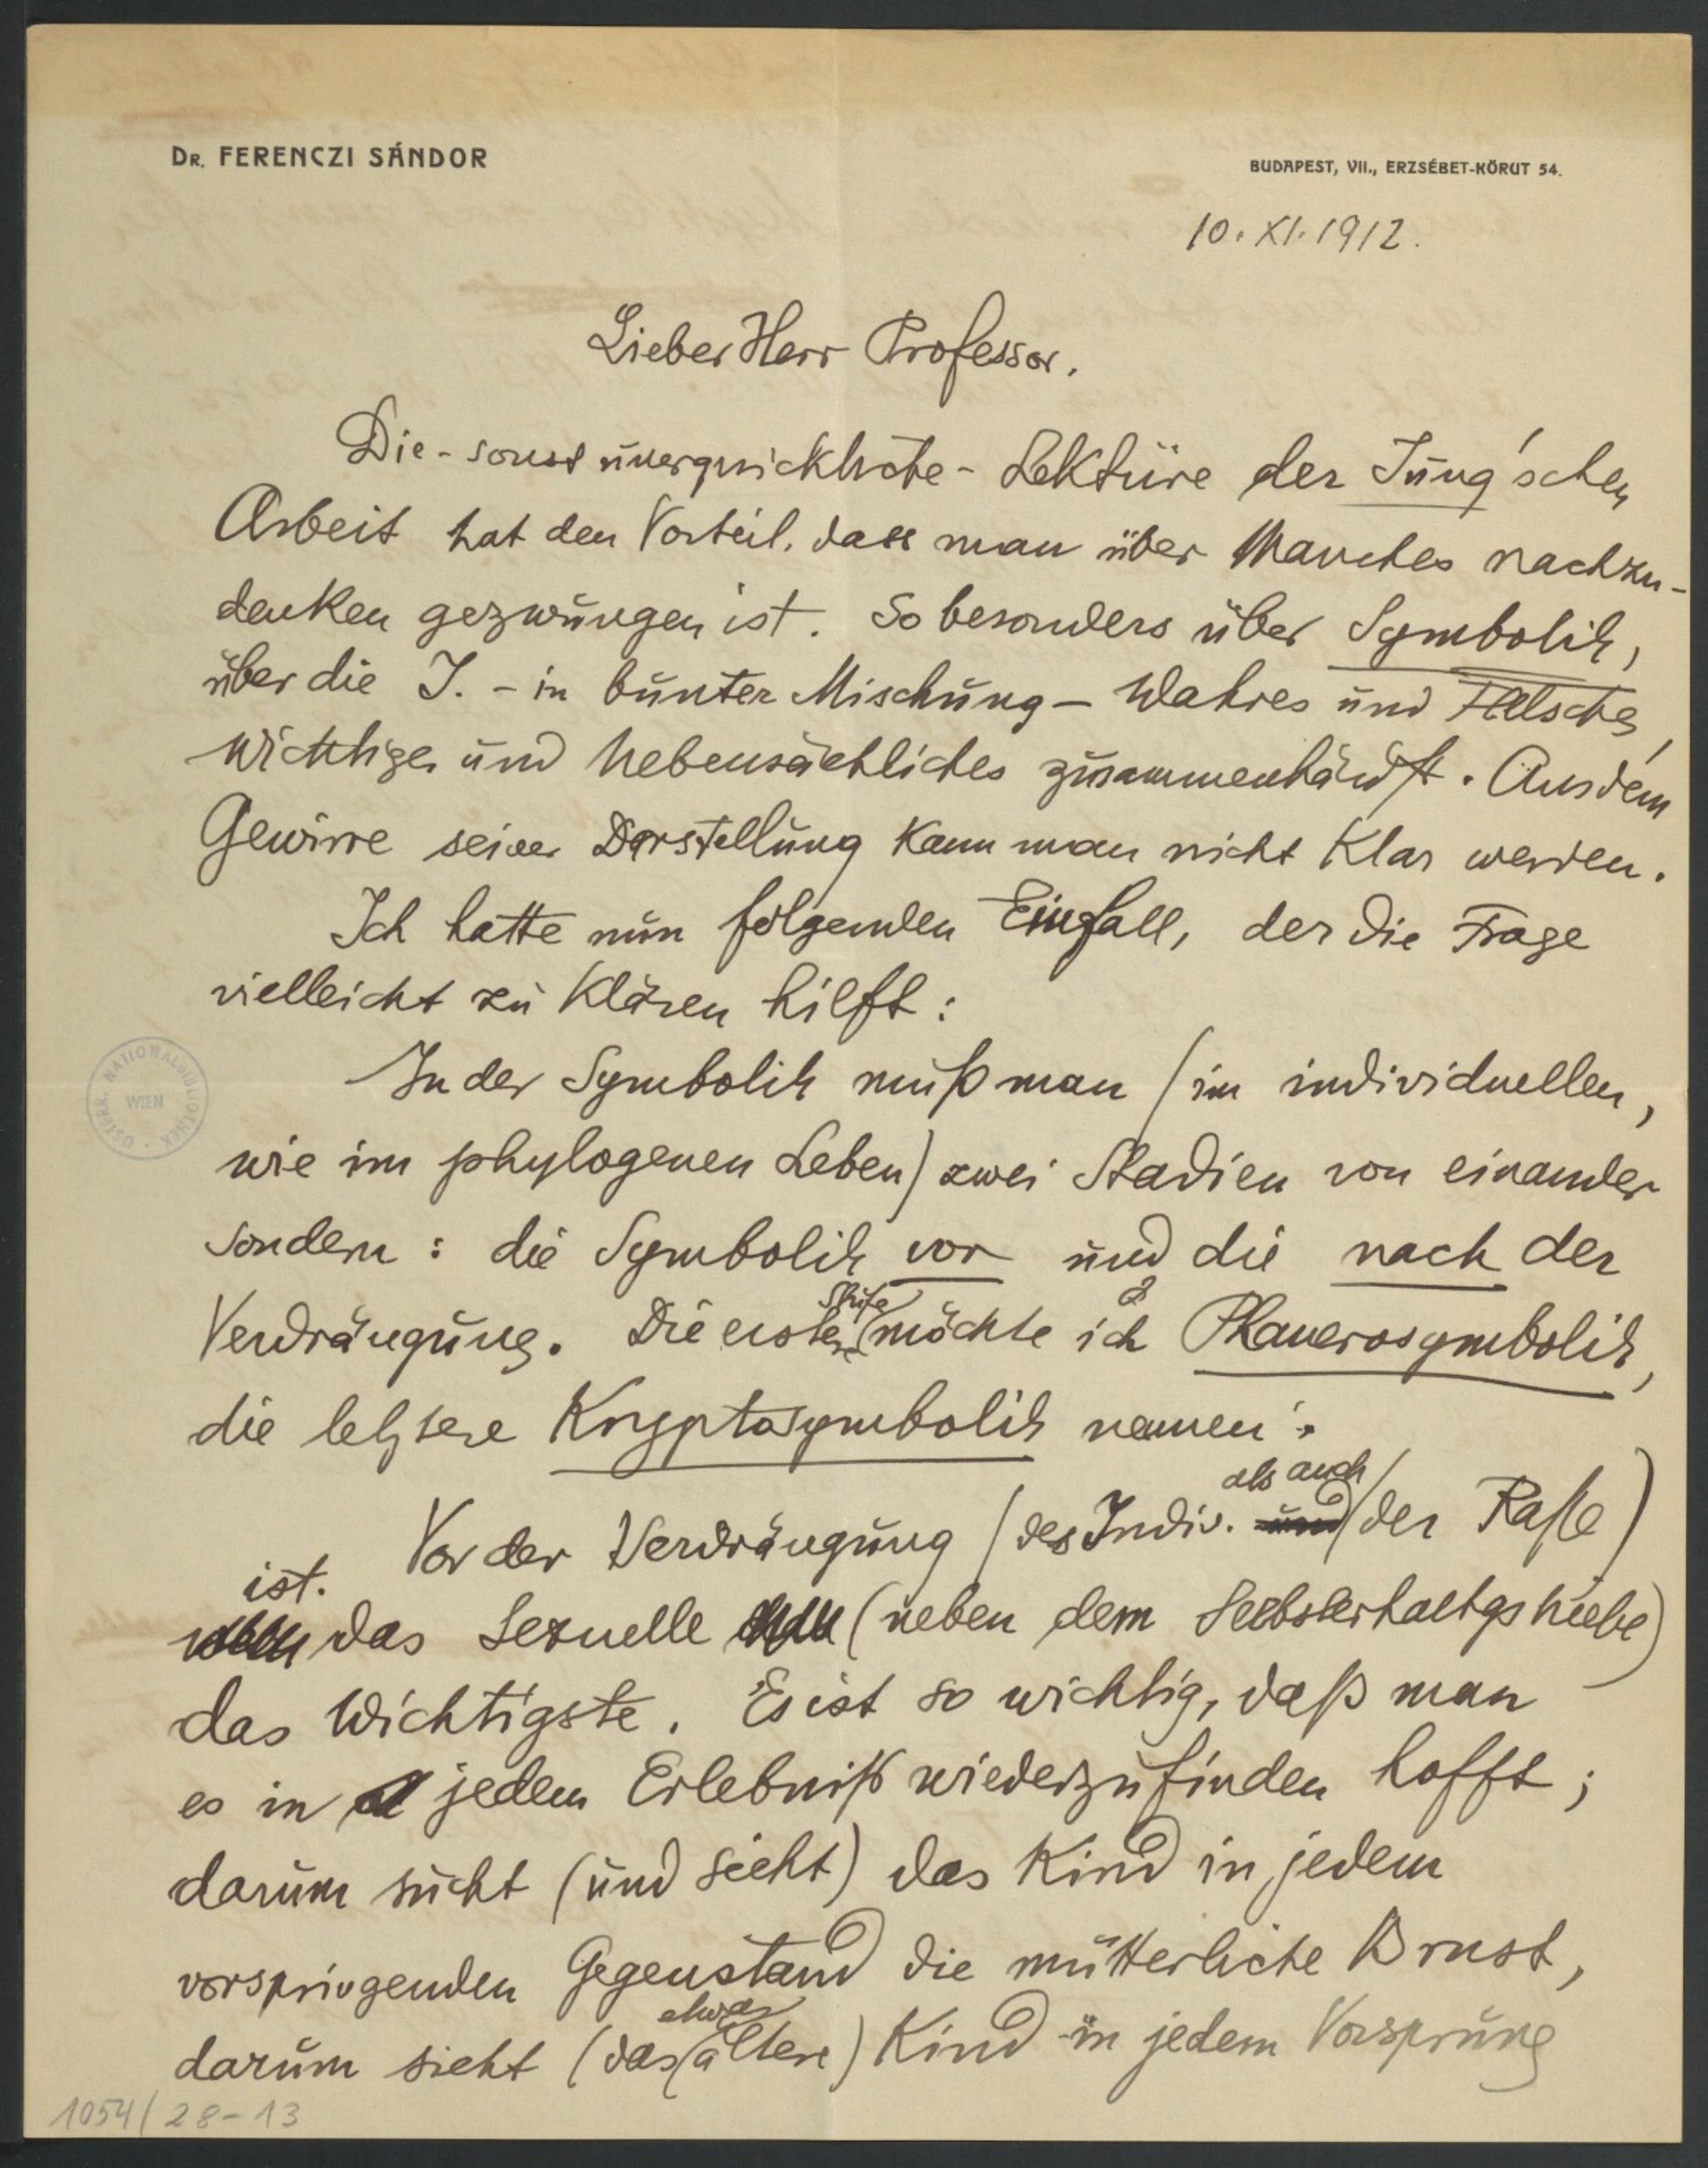 DR. FERENCZI SÁNDOR
BUDAPEST, VII., ERZSÉBET-KÖRUT 54.
10. XI. 1912.
Lieber Herr Professor.
Die - sonst unerquickliche - Lektüre der Jung'schen
Arbeit hat den Vorteil, dass man über Manches nachzu-
denken gezwungen ist. So besonders über Symbolik,
über die J. - in bunter Mischung - Wahres und Falsches,
Wichtiges und Nebensächliches zusammenhäuft. Aus dem
Gewirre seiner Darstellung kann man nicht klar werden.
Ich hatte nun folgenden Einfall, der die Frage
vielleicht zu klären hilft:
In der Symbolik muß man (im individuellen,
wie im phylogenen Leben) zwei Stadien von einander
sondern: die Symbolik vor und die nach der
Verdrängung. Die erstere Stufe möchte ich Phanerosymbolik,
die letztere Kryptosymbolik nennen.
Vor der Verdrängung (des Indiv. als auch der Raße)
ist das Sexuelle (neben dem Selbsterhaltgstriebe)
das Wichtigste. Es ist so wichtig, daß man
es in jedem Erlebniß wiederzufinden hofft;
darum sucht (und sieht) das Kind in jedem
vorspringenden Gegenstand die mütterliche Brust,
darum sieht (das etwas ältere) Kind in jedem Vorsprung
ÖSTERR. NATIONALBIBLIOTHEK WIEN
1054/28-13